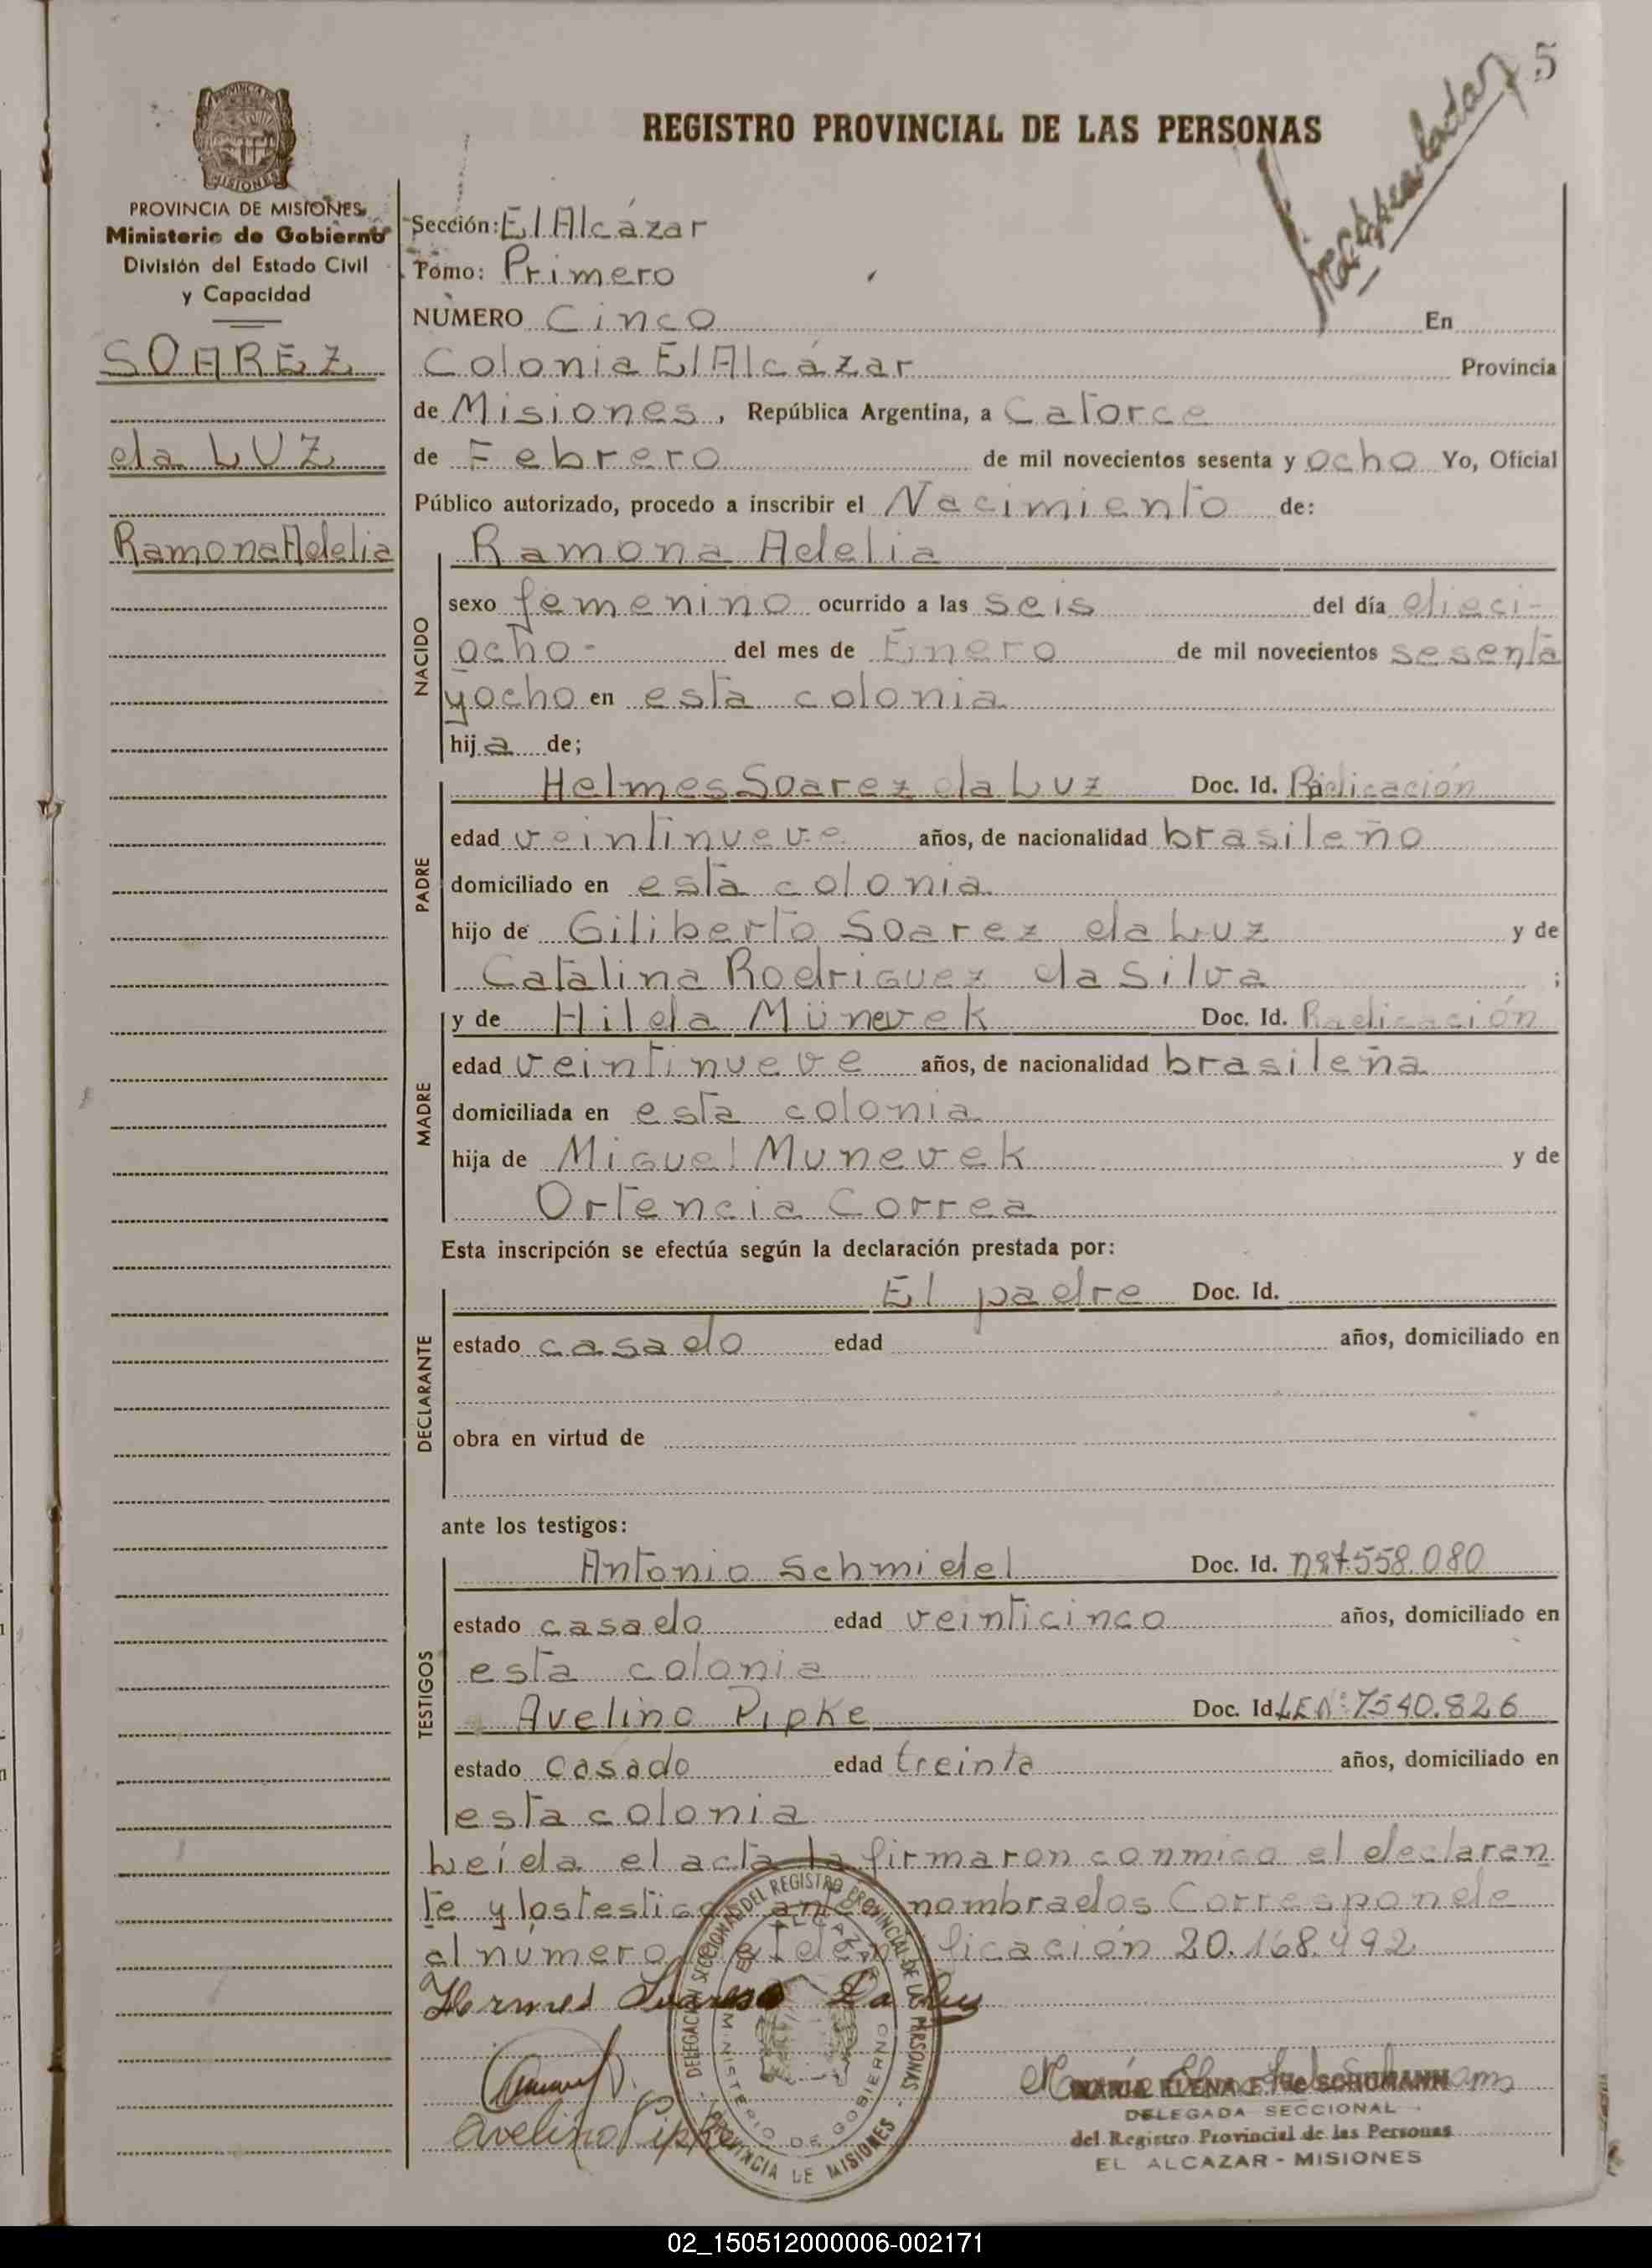 5
REGISTRO PROVINCIAL DE LAS PERSONAS
PROVINCIA DE MISIONES
MISIONES
PROVINCIA DE MISIONES
Ministerio de Gobierno
División del Estado Civil
y Capacidad
SOAREZ
da LUZ
Ramona Adelia
Sección: El Alcázar
Tomo: Primero
NÚMERO Cinco En
Colonia El Alcázar Provincia
de Misiones, República Argentina, a Catorce
de Febrero de mil novecientos sesenta y ocho Yo, Oficial
Público autorizado, procedo a inscribir el Nacimiento de:
Ramona Adelia
NACIDO
sexo femenino ocurrido a las seis del día dieci-
ocho- del mes de Enero de mil novecientos sesenta
y ocho en esta colonia
hija de;
PADRE
Helmes Soarez da Luz Doc. Id. Radicación
edad veintinueve años, de nacionalidad brasileño
domiciliado en esta colonia
hijo de Giliberto Soarez da Luz y de
Catalina Rodriguez da Silva ;
MADRE
y de Hilda Münevek Doc. Id. Radicación
edad veintinueve años, de nacionalidad brasileña
domiciliada en esta colonia
hija de Miguel Munevek y de
Ortencia Correa
Esta inscripción se efectúa según la declaración prestada por:
DECLARANTE
El padre Doc. Id.
estado casado edad años, domiciliado en
obra en virtud de
ante los testigos:
TESTIGOS
Antonio Schmidel Doc. Id. 7.558.080
estado casado edad veinticinco años, domiciliado en
esta colonia
Avelino Pipke Doc. Id. LE Nº 7540.826
estado casado edad treinta años, domiciliado en
esta colonia
Leída el acta la firmaron conmigo el declaran
te y los testigos antes nombrados Corresponde
al número de Identificación 20.168.492
Hermes Suares Da Luz
Avelino Pipke
DELEGACIÓN SECCIONAL DEL REGISTRO PROVINCIAL DE LAS PERSONAS
EL ALCAZAR
MINISTERIO DE GOBIERNO
PROVINCIA DE MISIONES
MARÍA ELENA F. de SCHUMANN
DELEGADA SECCIONAL
del Registro Provincial de las Personas
EL ALCAZAR - MISIONES
02_150512000006-002171